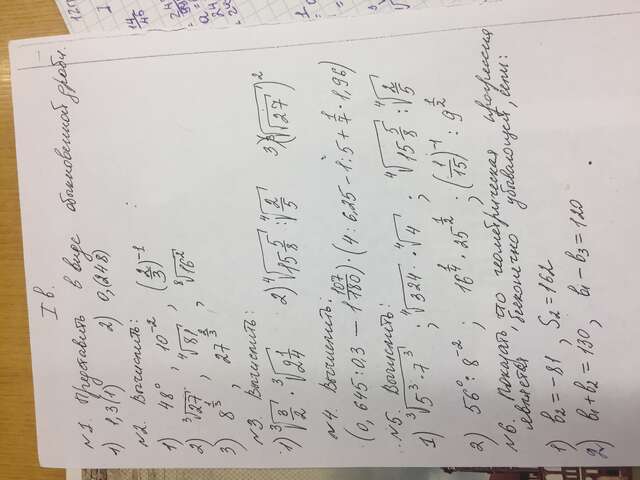 I в.
№1. Представить в виде обыкновенной дроби.
1) 1,3(1)  2) 0,(248)
№2. Вычислить:
1) 48⁰, 10⁻², (2/3)⁻¹
2) ∛27, ∜81, ⁸√16²
3) 8^(1/3), 27^(2/3)
№3. Вычислить:
1) ∛(3/2) · ∛(2 1/4)  2) ∜(15 5/8) : ∜(2/5)  3) (∛√27)²
№4. Вычислить:
(0,645:0,3 − 1 107/180)·(4:6,25−1:5+1/7·1,96)
№5. Вычислить:
1) ∛(5³·7³); ∜324·∜4; ∜(15 5/8) : ∜(2/5)
2) 56⁰:8⁻²; 16^(1/4)·25^(1/2); (1/15)⁻¹:9^(1/2)
№6. Показать, что геометрическая прогрессия
является бесконечно убывающей, если:
1) b₂=−81, S₂=162
2) b₁+b₂=130, b₁−b₃=120